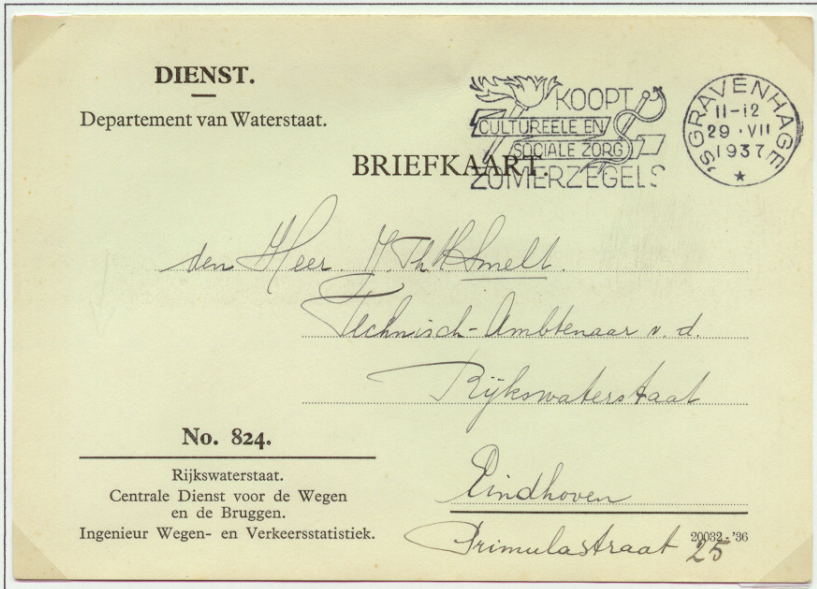 DIENST.
Departement van Waterstaat.
BRIEFKAART.
KOOPT
CULTUREELE EN
SOCIALE ZORG
ZOMERZEGELS
'S GRAVENHAGE
11-12
29·VII
1937
den Heer. Smelt.
Technisch-Ambtenaar v. d.
Rijkswaterstaat
Eindhoven
Primulastraat 25
No. 824.
Rijkswaterstaat.
Centrale Dienst voor de Wegen
en de Bruggen.
Ingenieur Wegen- en Verkeersstatistiek.
20032-'36